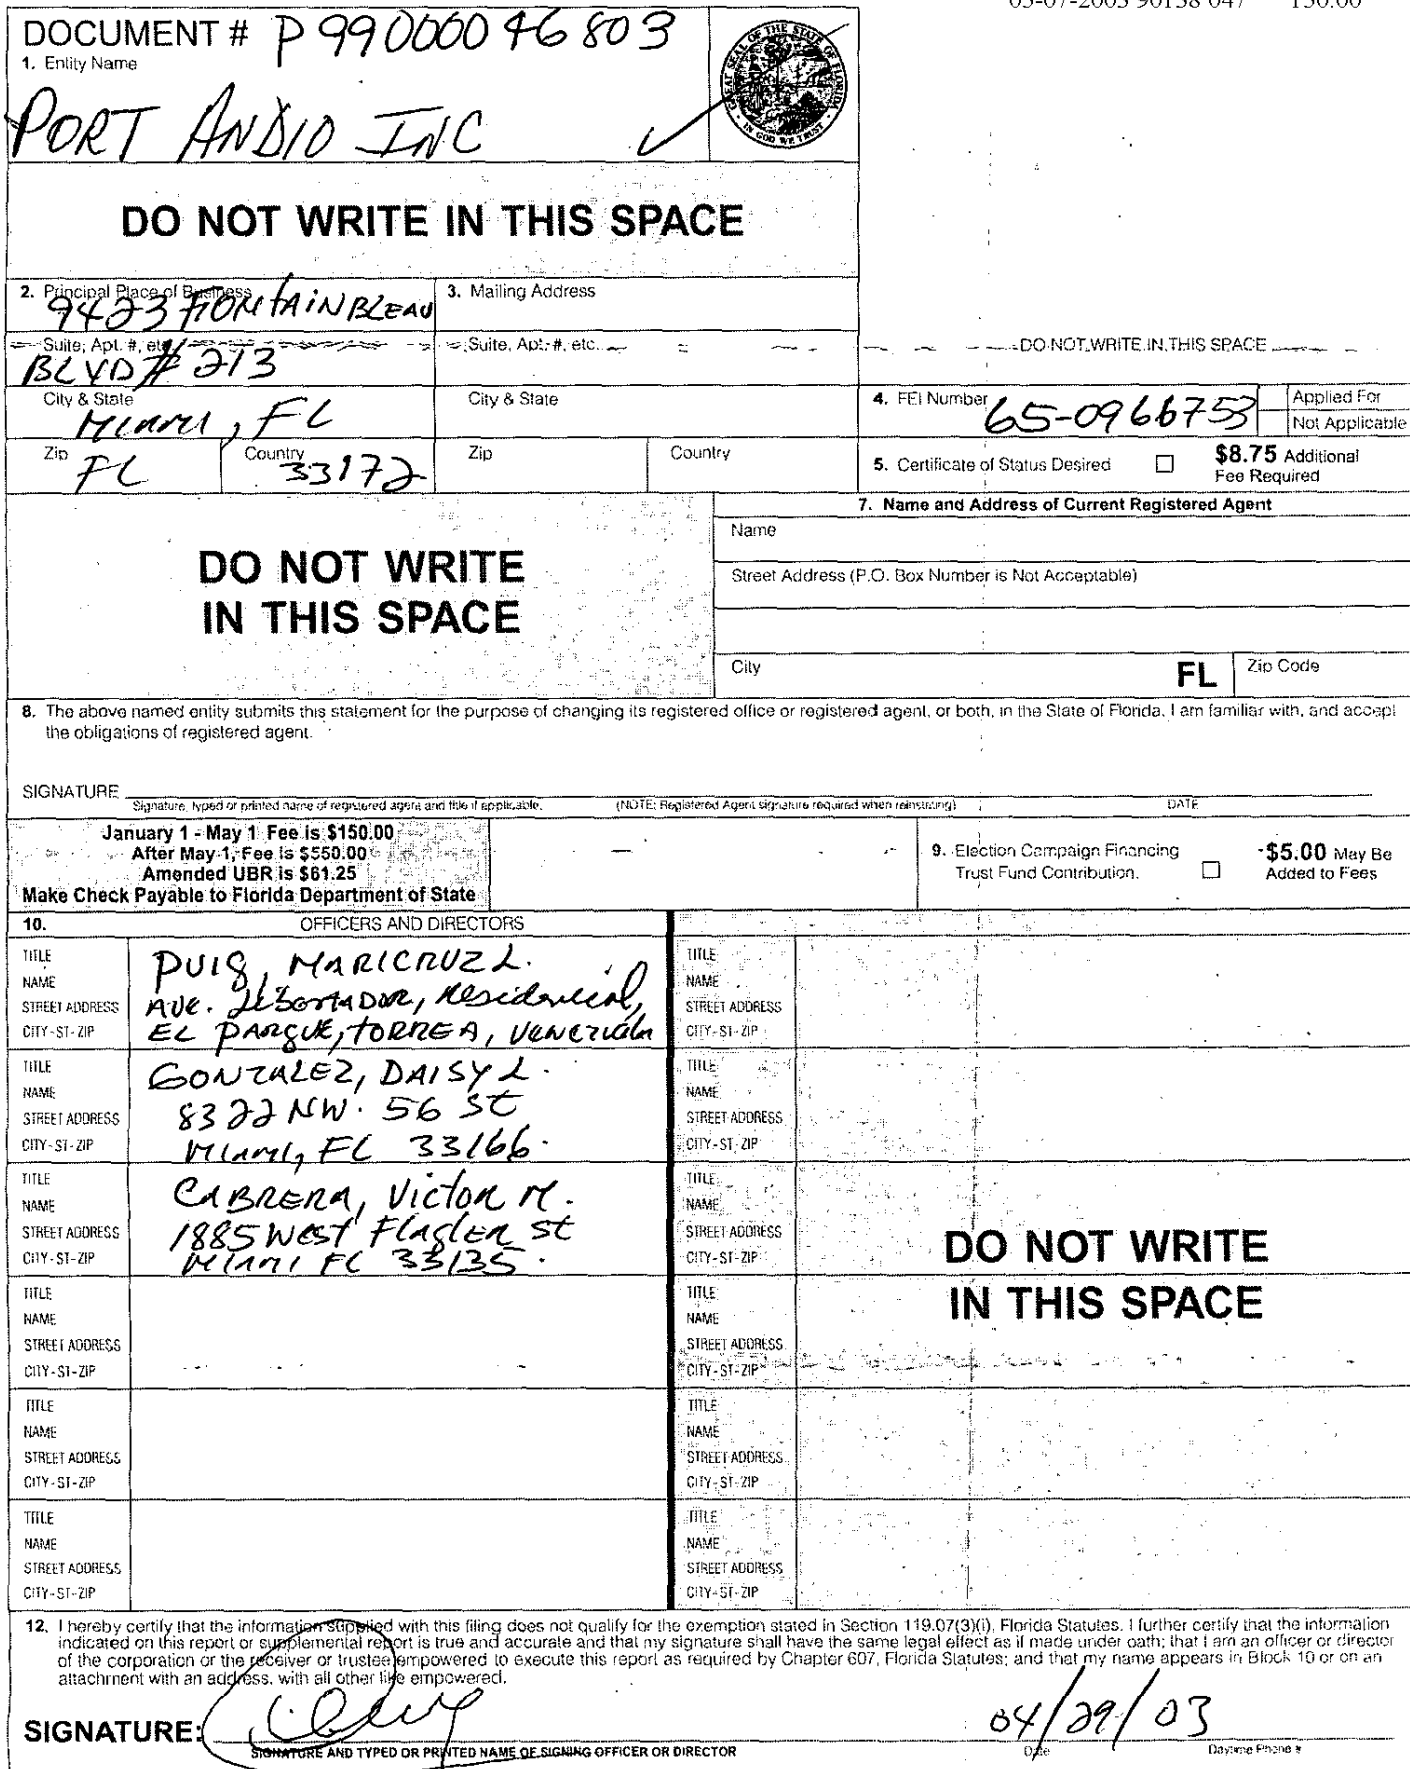 05-07-2003 90138 047 150.00
DOCUMENT # P99000046803
1. Entity Name
PORT ANDIO INC
GREAT SEAL OF THE STATE OF FLORIDA
IN GOD WE TRUST
DO NOT WRITE IN THIS SPACE
2. Principal Place of Business
9423 FIONTAINBLEAU
3. Mailing Address
Suite, Apt. #, etc.
BLVD # 213
Suite, Apt. #, etc.
DO NOT WRITE IN THIS SPACE
City & State
Miami, FL
City & State
4. FEI Number
65-0966753
Applied For
Not Applicable
Zip
FL
Country
33172
Zip
Country
5. Certificate of Status Desired
$8.75 Additional
Fee Required
7. Name and Address of Current Registered Agent
Name
DO NOT WRITE
IN THIS SPACE
Street Address (P.O. Box Number is Not Acceptable)
City
FL
Zip Code
8. The above named entity submits this statement for the purpose of changing its registered office or registered agent, or both, in the State of Florida. I am familiar with, and accept
the obligations of registered agent.
SIGNATURE
Signature, typed or printed name of registered agent and title if applicable.
(NOTE: Registered Agent signature required when reinstating)
DATE
January 1 - May 1 Fee is $150.00
After May 1, Fee is $550.00
Amended UBR is $61.25
Make Check Payable to Florida Department of State
9. Election Campaign Financing
Trust Fund Contribution.
$5.00 May Be
Added to Fees
10. OFFICERS AND DIRECTORS
TITLE
NAME
STREET ADDRESS
CITY-ST-ZIP
PUIG, MARICRUZ L.
AVE. LIBERTADOR, Residencial,
EL PARQUE, TORRE A, VENEZUELA
TITLE
NAME
STREET ADDRESS
CITY-ST-ZIP
TITLE
NAME
STREET ADDRESS
CITY-ST-ZIP
GONZALEZ, DAISY L.
8322 NW. 56 St
Miami, FL 33166.
TITLE
NAME
STREET ADDRESS
CITY-ST-ZIP
TITLE
NAME
STREET ADDRESS
CITY-ST-ZIP
CABRERA, Victor M.
1885 West FLAGLER St
Miami FL 33135.
TITLE
NAME
STREET ADDRESS
CITY-ST-ZIP
DO NOT WRITE
IN THIS SPACE
TITLE
NAME
STREET ADDRESS
CITY-ST-ZIP
TITLE
NAME
STREET ADDRESS
CITY-ST-ZIP
TITLE
NAME
STREET ADDRESS
CITY-ST-ZIP
TITLE
NAME
STREET ADDRESS
CITY-ST-ZIP
TITLE
NAME
STREET ADDRESS
CITY-ST-ZIP
TITLE
NAME
STREET ADDRESS
CITY-ST-ZIP
12. I hereby certify that the information supplied with this filing does not qualify for the exemption stated in Section 119.07(3)(i), Florida Statutes. I further certify that the information
indicated on this report or supplemental report is true and accurate and that my signature shall have the same legal effect as if made under oath; that I am an officer or director
of the corporation or the receiver or trustee empowered to execute this report as required by Chapter 607, Florida Statutes; and that my name appears in Block 10 or on an
attachment with an address, with all other like empowered.
SIGNATURE:
04/29/03
SIGNATURE AND TYPED OR PRINTED NAME OF SIGNING OFFICER OR DIRECTOR
Date
Daytime Phone #